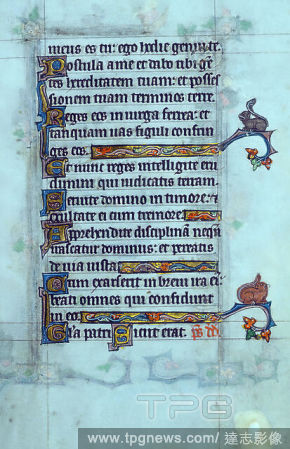 meus es tu: ego hodie genui te.
Postula a me et dabo tibi gen
tes hereditatem tuam: et posses
sionem tuam terminos terre.
Reges eos in uirga ferrea: et
tanquam uas figuli confrin
ges eos.
Et nunc reges intelligite eru
dimini qui iudicatis terram.
Seruite domino in timore: et
exultate ei cum tremore.
Apprehendite disciplinam nequan
irascatur dominus: et pereatis
de uia iusta.
Cum exarserit in breui ira ei
beati omnes qui confidunt
in eo.
Gl'a patri Sicut erat. ps dd
TPG
www.tpgnews.com/ 達志影像